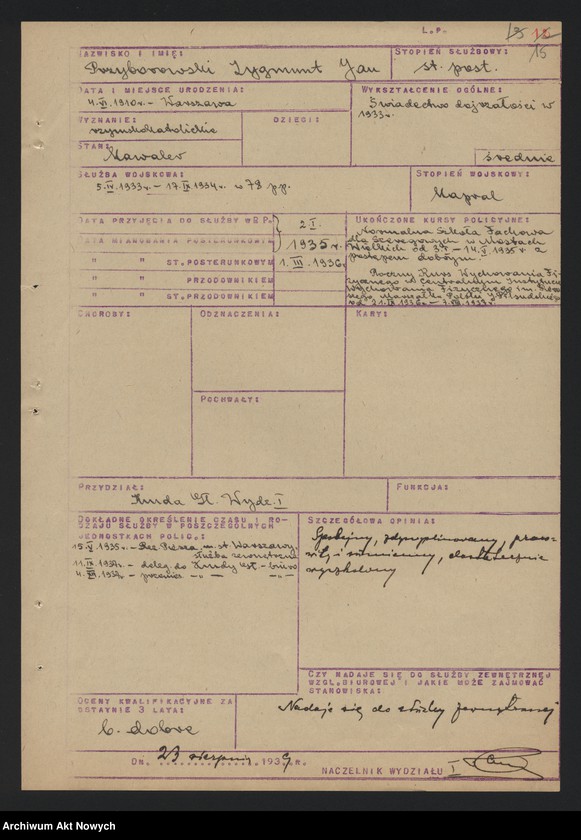 L.P. 15
15
NAZWISKO I IMIĘ:
Przyborowski Zygmunt Jan
STOPIEŃ SŁUŻBOWY:
st. post.
DATA I MIEJSCE URODZENIA:
4.VI.1910r. - Warszawa
WYKSZTAŁCENIE OGÓLNE:
Świadectwo dojrzałości w
1933r.
średnie
WYZNANIE:
rzymskokatolickie
DZIECI:
STAN:
Kawaler
SŁUŻBA WOJSKOWA:
5.IV.1933r. - 17.IX.1934r. w 78 p.p.
STOPIEŃ WOJSKOWY:
Kapral
DATA PRZYJĘCIA DO SŁUŻBY W P.P.
2 I.
DATA MIANOWANIA POSTERUNKOWYM
1935r.
" " ST.POSTERUNKOWYM
1.III.1936r.
" " PRZODOWNIKIEM
" " ST.PRZODOWNIKIEM
UKOŃCZONE KURSY POLICYJNE:
Normalna Szkoła Fachowa
dla Szeregowych w Mostach
Wielkich od 3.I - 14.V.1935r. z
postępem dobrym.
Roczny Kurs Wychowania Fi-
zycznego w Centralnym Instytucie
Wychowania Fizycznego im. Pierw-
szego Marszałka Polski J. Piłsudskiego
CHOROBY:
ODZNACZENIA:
KARY:
POCHWAŁY:
PRZYDZIAŁ:
Kmda Gł. Wydz. I
FUNKCJA:
DOKŁADNE OKREŚLENIE CZASU I RO-
DZAJU SŁUŻBY W POSZCZEGÓLNYCH
JEDNOSTKACH POLIC.:
15.V.1935r. - Rez. Piesza m. st. Warszawy
służba zewnętrzna
- deleg. do Kmdy Gł. - biuro
- przenies. -"- -"-
SZCZEGÓŁOWA OPINIA:
Spokojny, zdyscyplinowany, praco-
wity i sumienny, dostatecznie
wyszkolony
CZY NADAJE SIĘ DO SŁUŻBY ZEWNĘTRZNEJ
WZGL.BIUROWEJ I JAKIE MOŻE ZAJMOWAĆ
STANOWISKA:
Nadaje się do służby zewnętrznej
OCENY KWALIFIKACYJNE ZA
OSTATNIE 3 LATA:
b. dobre
Dn. 23 sierpnia 1939r.
NACZELNIK WYDZIAŁU I
Archiwum Akt Nowych